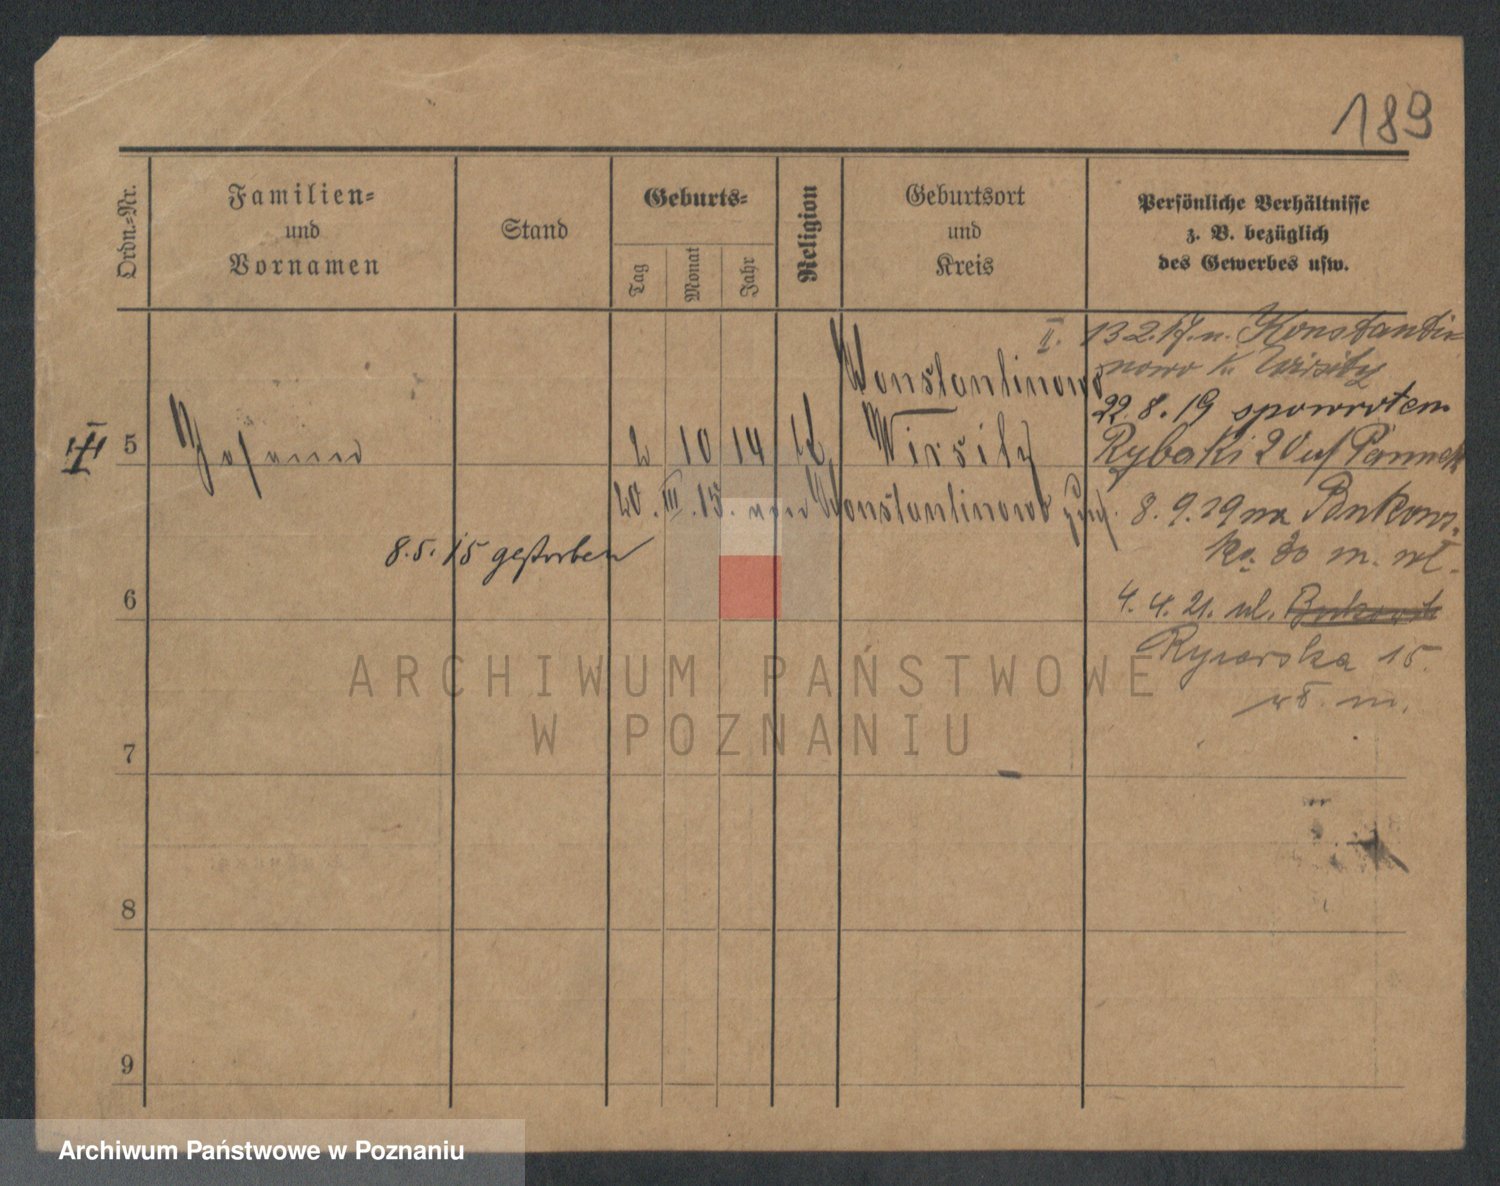 189
Ordn.=Nr.
Familien=
und
Vornamen
Stand
Geburts=
Tag
Monat
Jahr
Religion
Geburtsort
und
Kreis
Persönliche Verhältnisse
z. B. bezüglich
des Gewerbes usw.
II. 13.2.17. n. Konstanti-
nowo K. Wirsitz
Konstantinowo
22.8.19 spowrotem
5 Johann 2 10 14 Wirsitz
Rybaki 20
20. III. 15. von Konstantinowo
8.9.19 na
8.5.15 gestorben
6
4.4.21. ul.
15.
7
8
9
ARCHIWUM PAŃSTWOWE
W POZNANIU
Archiwum Państwowe w Poznaniu